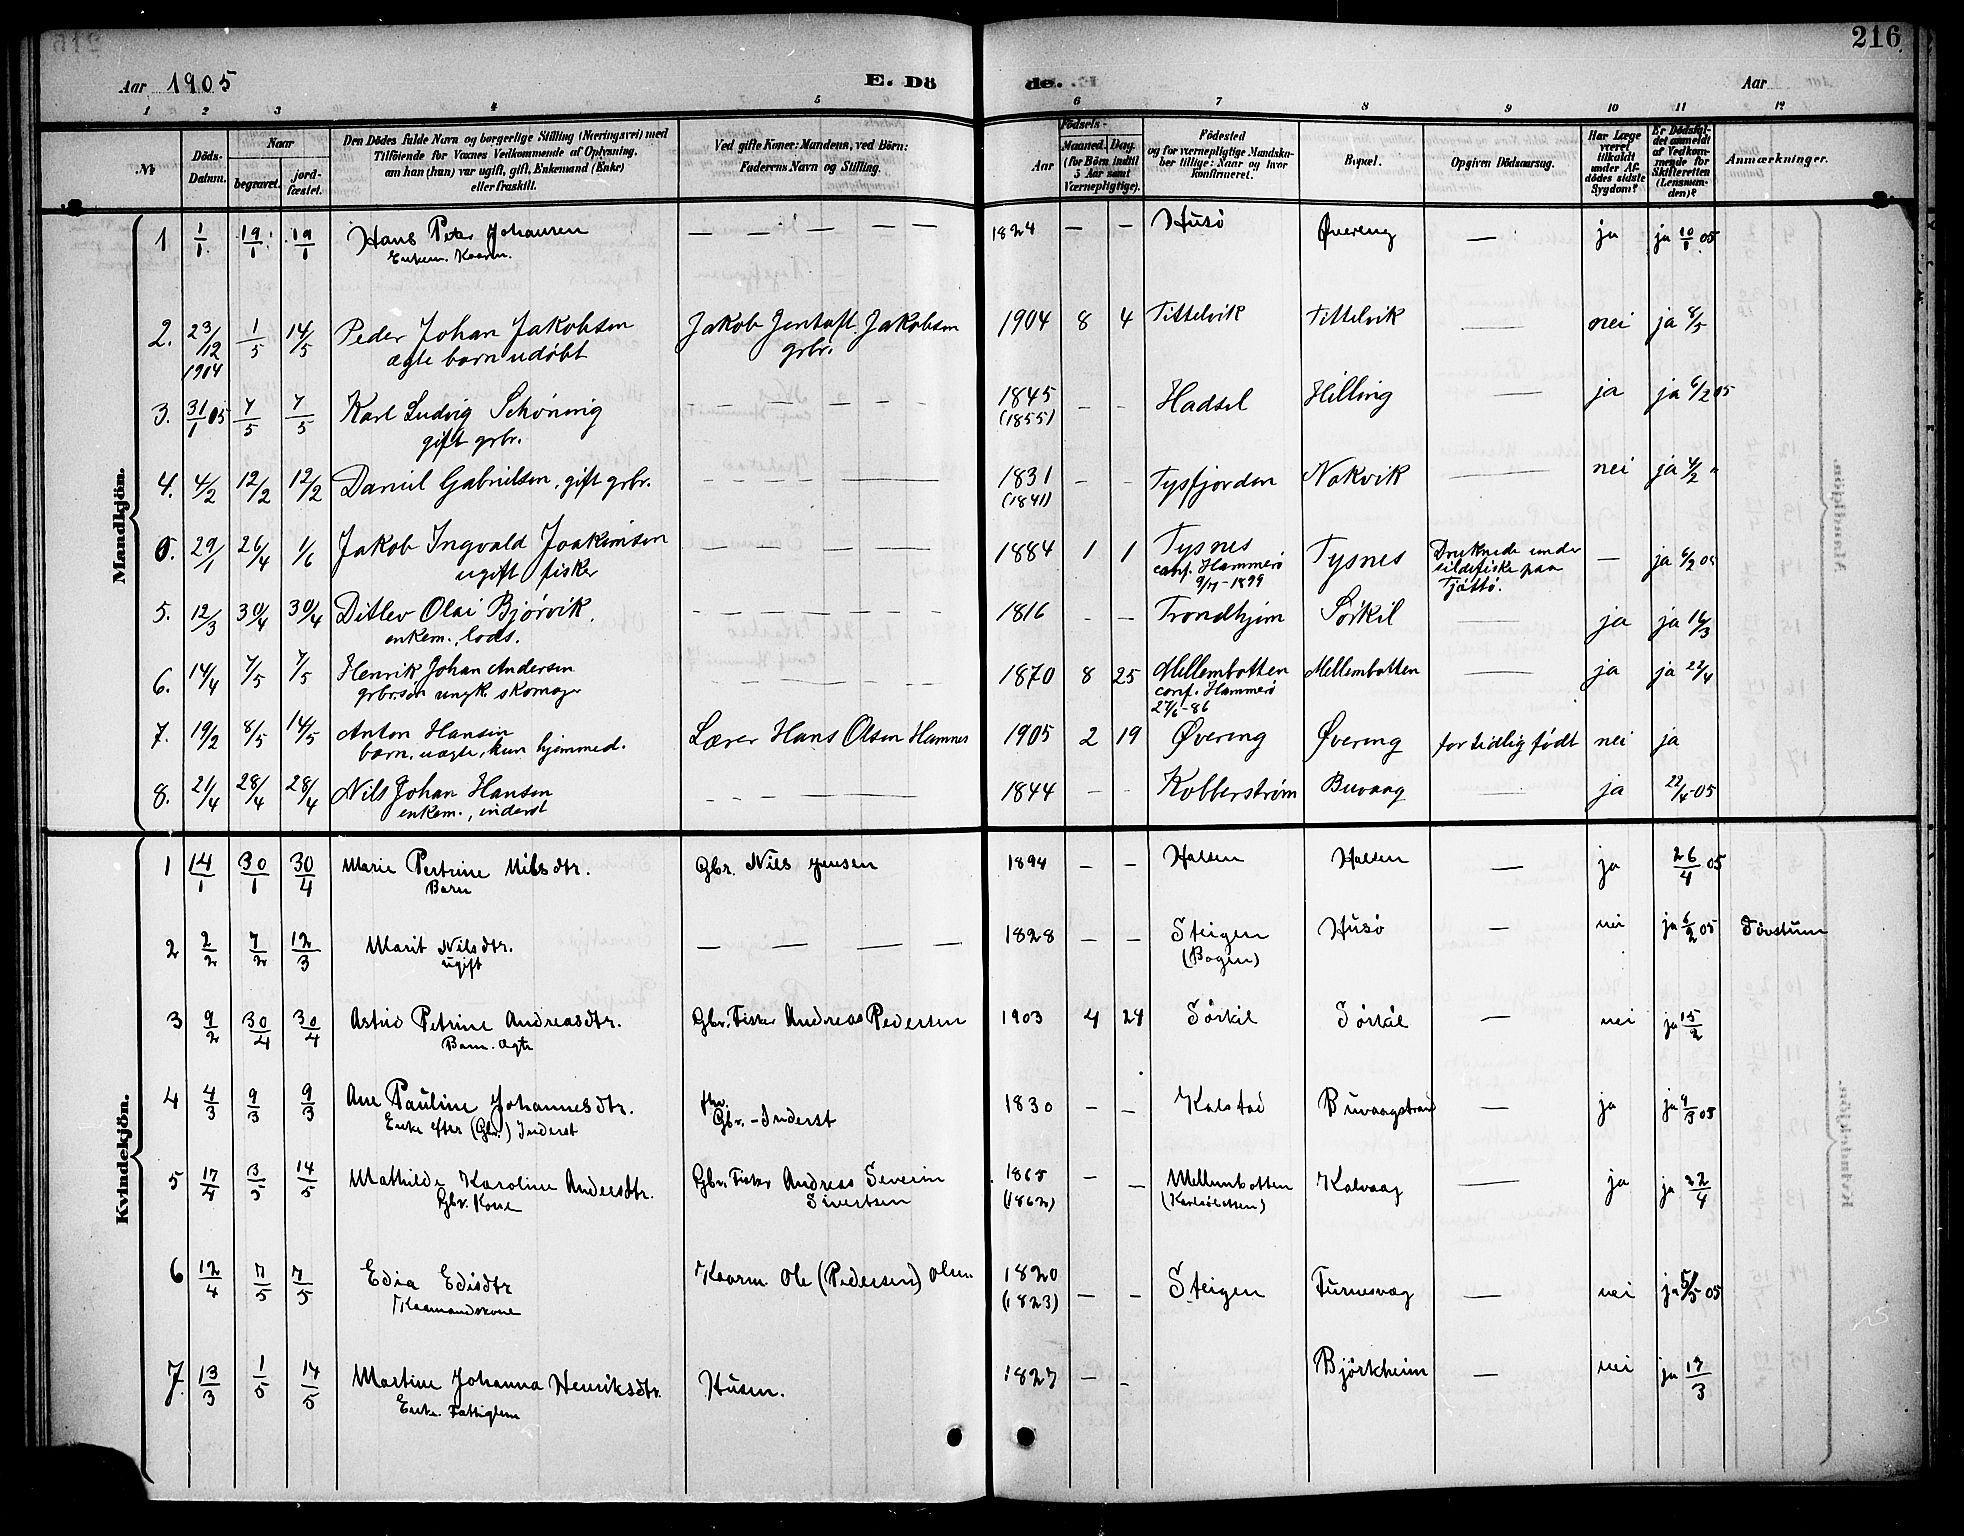 216
Aar 1905 E. Dö
de. Aar
1 2 3 4 5 6 7 8 9 10 11 12
No. Döds-Datum. Naar begravet. jord-fæstet. Den Dödes fulde Navn og borgerlige Stilling (Næringsvei) med Tilföiende for Voxnes Vedkommende af Oplysning, om han (hun) var ugift, gift, Enkemand (Enke) eller fraskilt. Ved gifte Koner: Mandens, ved Börn: Faderens Navn og Stilling. Födsels- Aar Maaned. Dag. (for Börn indtil 5 Aar samt Værnepligtige). Födested og for værnepligtige Mandskaber tillige: Naar og hvor konfirmeret. Bopæl. Opgiven Dödsaarsag. Har Læge været tilkaldt under Afdödes sidste Sygdom? Er Dödsfaldet anmeldt af Vedkommende for Skifteretten (Lensmanden)? Anmærkninger.
Mandkjön.
1 1/1. 19/1. 19/1 Hans Peter Johansen — — — — — 1824 — — Husö Øvereng — ja ja 10/1 05
Enkem. Kaarm.
2. 23/12 1904 1/5 14/5 Peder Johan Jakobsen Jakob Jentoft Jakobsen 1904 8 4 Tittelvik Tittelvik — nei ja 8/5
ægte barn udøbt grbr.
3. 31/1 05 7/5 7/5 Karl Ludvig Schøning — — — — 1845 — — Hadsel Hilling — ja ja 6/2 05
gift grbr. (1855)
4. 4/2 12/2 12/2 Daniel Gabrielsen, gift grbr. — — — — 1831 — — Tysfjorden Nakvik — nei ja 4/2 "
(1841)
5. 29/1 26/4 1/6 Jakob Ingvald Joakimsen — — — — 1884 1 1 Tysnes Tysnes Druknede under — ja 6/2 05
ugift fisker conf. Hammerö sildefiske paa
9/7-1899 Tjöttö.
5. 12/3 30/4 30/4 Ditlev Olai Bjørvik, — — — — 1816 — — Trondhjem Sörkil — ja ja 16/3
enkem., lods.
6. 14/4 7/5 7/5 Henrik Johan Andersen — — — — 1870 8 25 Mellembotten Mellembotten — ja ja 22/4
grbr.søn ungk. skomager conf. Hammerö
27/6-86
7. 19/2 8/5 14/5 Anton Hansen Lærer Hans Olsen Hamnes 1905 2 19 Øvereng Øvereng for tidlig født nei ja
barn, uægte, kun hjemmed.
8. 21/4 28/4 28/4 Nils Johan Hansen — — — — 1844 — — Kobberstrøm Buvaag — ja 22/4-05
enkem., inderst
Kvindekjön.
1 14/1 30/1 30/4 Marie Pertrine Nilsdtr. Gbr. Nils Jensen 1894 — — Halsen Halsen — ja 26/4 05
Barn
2 2/2 7/2 12/3 Marit Nilsdtr. — — — — 1828 — — Steigen Husö — nei ja 6/2 05 Døvstum
ugift (Bogen)
3 9/2 30/4 30/4 Astrid Petrine Andreasdtr. Gbr. Fisker Andreas Pedersen 1903 4 24 Sörkil Sörkil — nei ja 15/2
Barn. Ægte
4 4/3 9/3 9/3 Ane Pauline Johannesdtr. 1830 — — Kalstad Buvaagstrand — ja ja 9/3 05
Enke efter (Gbr.) Inderst Gbr. - Inderst
5 17/4 3/5 14/5 Mathilde Karoline Andersdtr. Gbr. Fisker Andreas Severin 1865 — — Mellembotten Kalvaag — ja ja 22/4
Gbr. Kone Sivertsen (1862) (Karlsöbotten)
6 12/4 7/5 7/5 Edia Edisdtr Kaarm Ole (Pedersen) Olsen 1820 — — Steigen Furnesvag nei ja 5/5 05
Kaarmandskone (1823)
7 13/3 1/5 14/5 Martine Johanna Henriksdtr. Husm. 1827 — — Björkheim — nei ja 17/3
Enke. Fattiglem